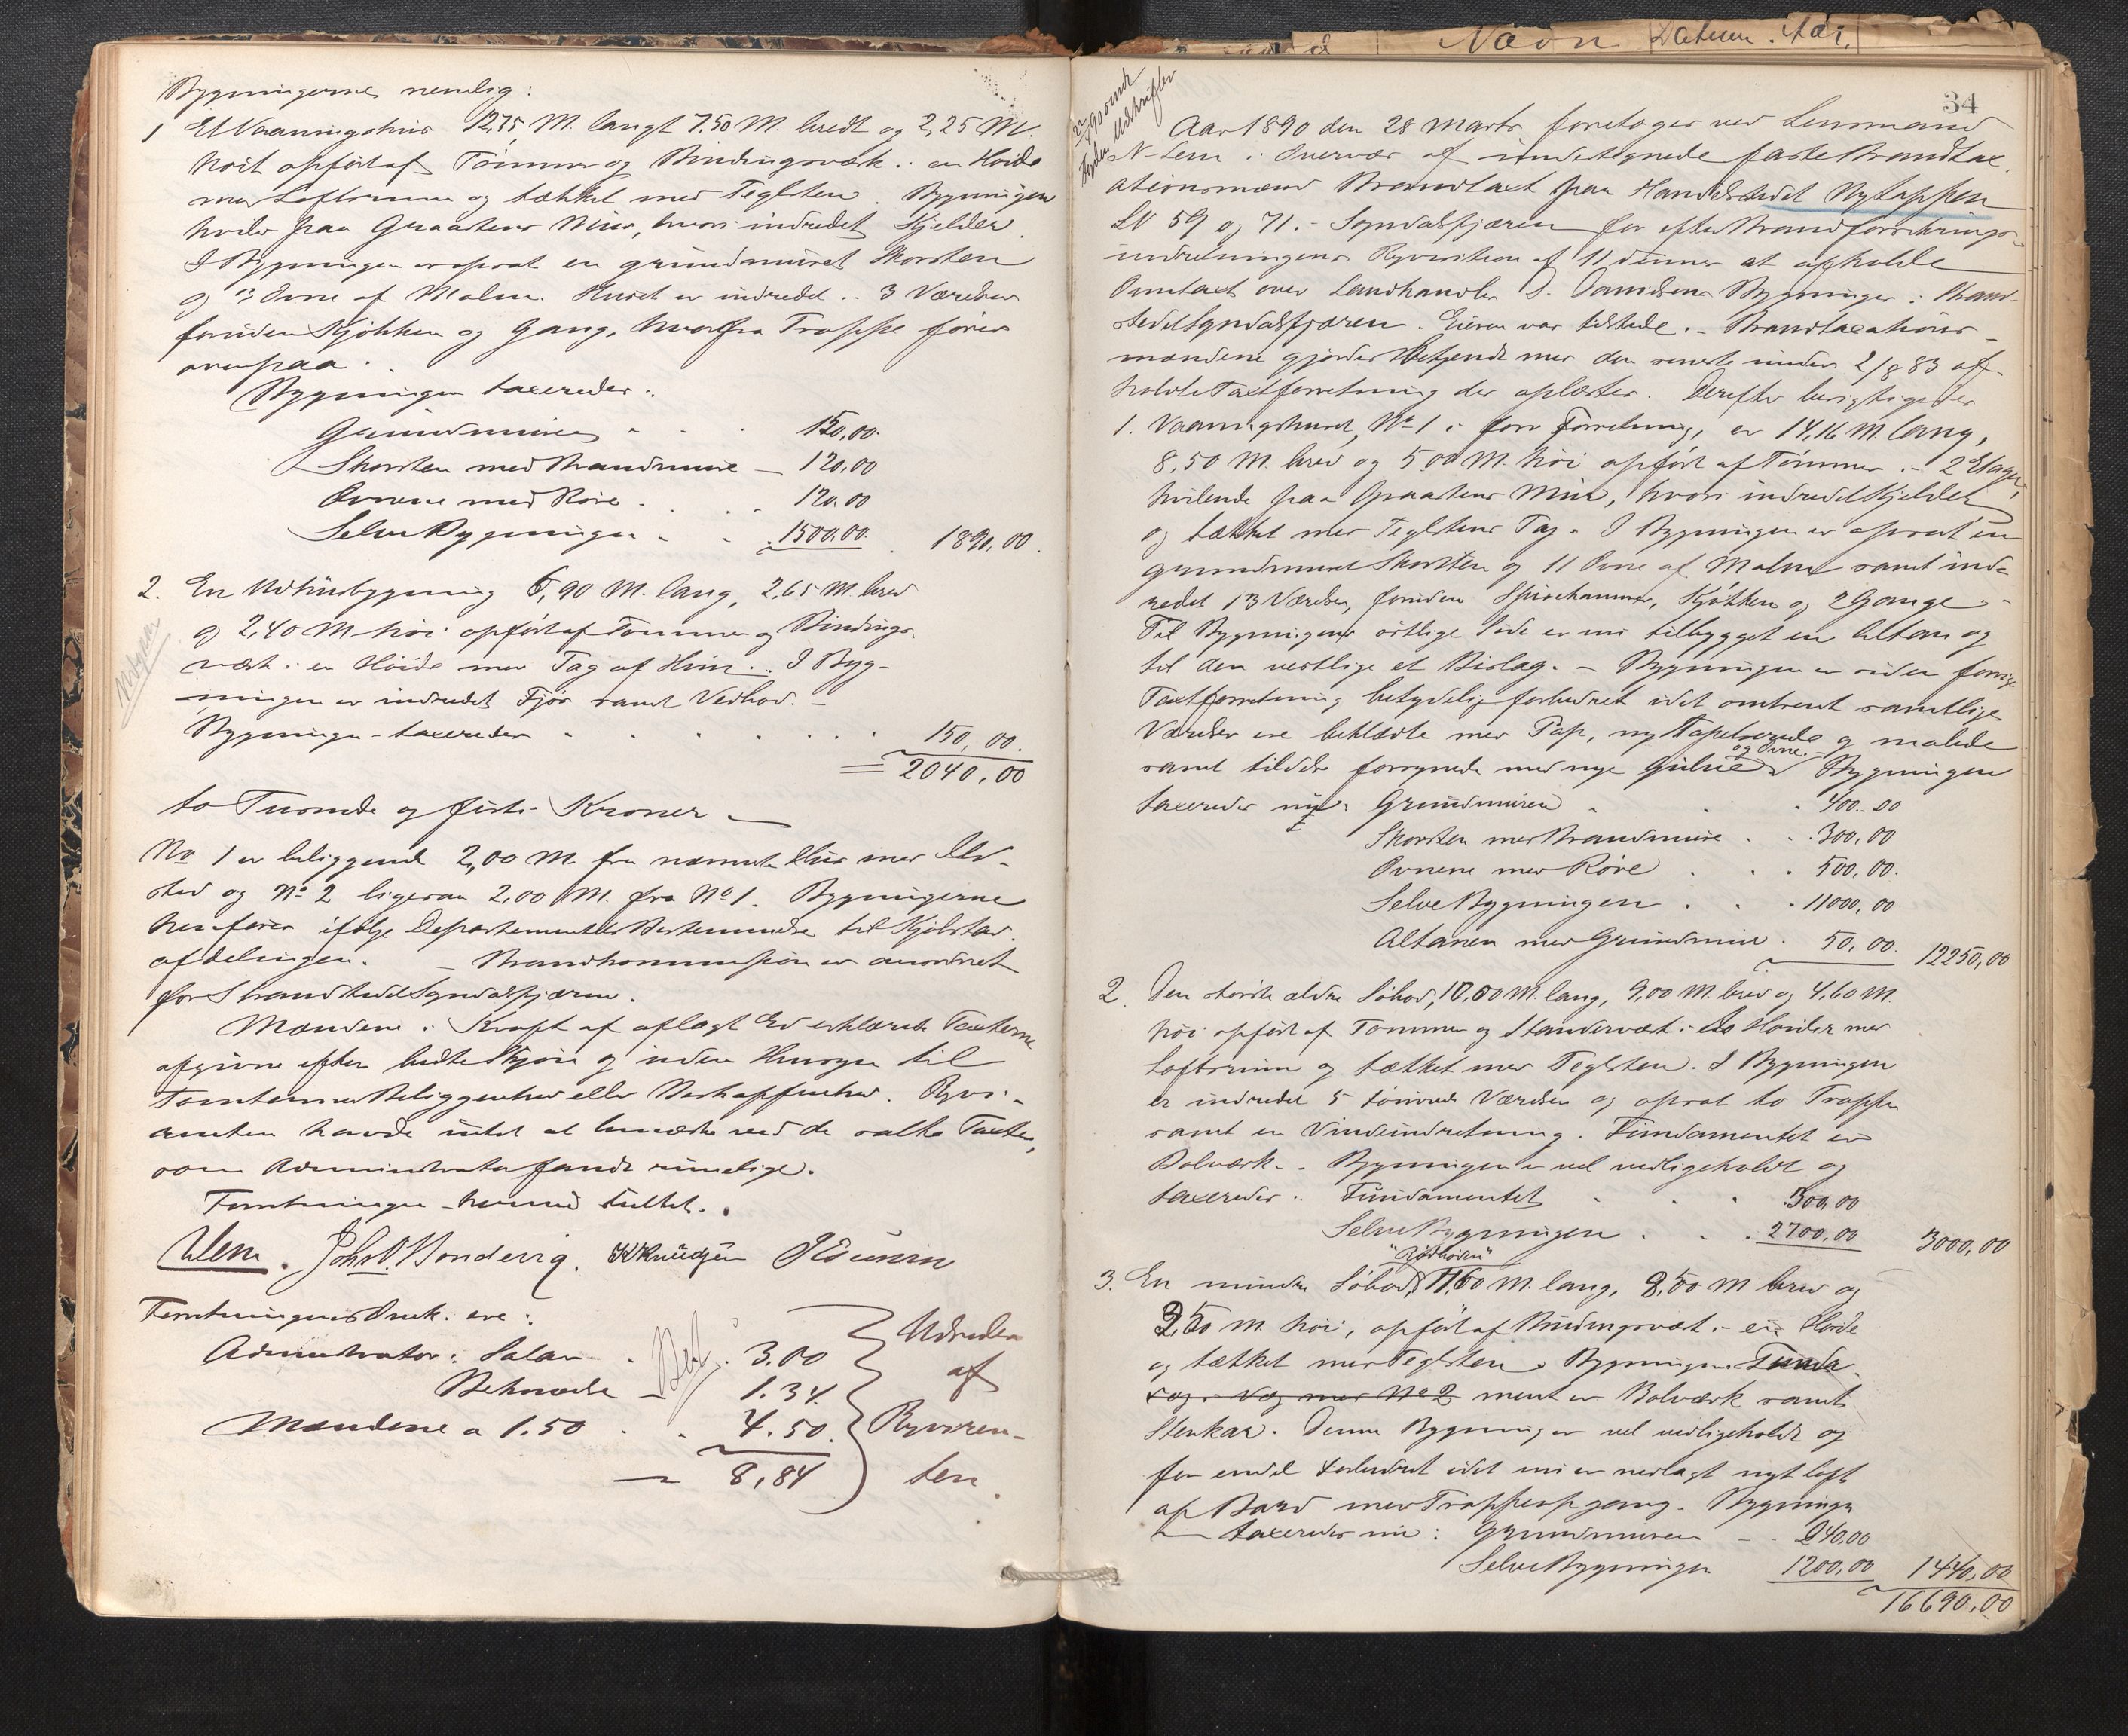 Bygningerne nemlig:
1 Et Vaaningshus 12,75 M. langt 7.50 M. bredt og 2,25 M.
høit opført af Tømmer og Bindingsværk i en Høide
med Loftsrum og tækket med Teglsten. Bygningen
hviler paa Graastens Mur, hvori indredet Kjelder.
I Bygningen er opsat en grundmuret Skorsten
og 3 Ovne af Malm. Huset er indredet i 3 Værelser
foruden Kjøkken og Gang, hvorfra Trappe fører
ovenpaa.
Bygningen taxeredes:
Grundmuren 150,00.
Skorsten med Brandmure — 120,00
Ovnene med Røre . 120,00
Selve Bygningen . 1500.00. 1890,00.
2. En Udhusbygning 6,90 M. lang, 2,65 M. bred
og 2,40 M høi opført af Tømmer og Bindings-
værk i en Høide med Tag af Hun. I Byg-
ningen er indredet Fjøs samt Vedbod. —
Bygningen taxeredes . . . 150,00.
= 2040,00
to Tusinde og førti Kroner —
No 1 er beliggende 2,00 M. fra nærmeste Hus med Ild-
sted og No 2 ligesaa 2,00 M. fra No 1. Bygningerne
henføres ifølge Departementets Bestemmelse til Kjøbstad-
afdelingen. — Brandkommission er anordnet
for Strandstedet Sogndalsfjæren.
Mændene i Kraft af aflagt Ed erklærede Taxterne
afgivne efter bedste Skjøn og uden Hensyn til
Tomternes Beliggenhed eller Beskaffenhed. Rekvi-
renten havde intet at bemærke ved de satte Taxter,
som Administrator fandt rimelige.
Forretningen hermed sluttet.
NLem. Johs O. Hondevig. K Knudsen
Forretningens Omk. ere:
Administrator: Salar . 3.00
Betalt
1.34
Mændene a 1.50 . . 4.50.
— 8,84
Udredes
af
Rekviren-
ten.
Nævn Datum. Aar.
34
Aar 1890 den 28 Marts foretoges ved Lensmand
N. Lem i Overvær af undertegnede faste Brandtax-
ationsmænd Brandtaxt paa Handelsstedet Nytappen
LN 59 og 71 i Sogndalsfjæren for efter Brandforsikrings-
indretningens Rekvisition af 11 dennes at afholde
Omtaxt over Landhandler D. Davidsens Bygninger i Strand-
stedet Sogndalsfjæren. Eieren var tilstede. — Brandtaxations-
mændene gjordes bekjendt med den seneste under 2/8 83 af-
holdte Taxtforretning der oplæstes. Derefter besigtigedes
1. Vaaningshuset, No 1 i forr. Forretning, er 14,16 M. lang,
8,50 M. bred og 5.00 M. høi opført af Tømmer i 2 Etager,
hvilende paa Graastens Mur, hvori indredet Kjelder
og tækket med Teglstens Tag. I Bygningen er opsat en
grundmuret Skorsten og 11 Ovne af Malm samt ind-
redet 13 Værelser, foruden Spisekammer, Kjøkken og 2 Gange —
Til Bygningens østlige Side er nu tilbygget en Altan og
til den vestlige et Bislag. — Bygningen er siden forrige
Taxtforretning betydelig forbedret idet omtrent samtlige
Værelser ere beklædte med Pap, ny Tapetserede og malede
samt tildels forsynede med nye Gulve og Ovne. Bygningen
taxeredes nu: Grundmuren . 400.00
Skorsten med Brandmure . . 300,00
Ovnene med Røre . . . 500,00.
Selve Bygningen . . . 11000,00
Altanen med Grundmur . 50,00. 12250,00
2. Den største ældre Søbod, 10,60 M. lang, 9,00 M. bred og 4,60 M.
høi opført af Tømmer og Standerværk i to Høider med
Loftsrum og tækket med Teglsten. I Bygningen
er indredet 5 Værelser og opsat to Trapper
samt en Vindeindretning. Fundamentet er
Bolværk. Bygningen er vel vedligeholdt og
taxeredes: Fundamentet . . . 300,00
Selve Bygningen . . . 2700,00 3000,00
3. En mindre Søbod, 11,60 M. lang, 8,50 M bred og
3,50 M. høi, opført af Bindingsværk i en Høide
og tækket med Teglsten. Bygningens Funda-
ment er Bolværk samt
Stenkar. Denne Bygning er vel vedligeholdt og
for endel forbedret idet nu er nedlagt nyt Loft
af Bord med Trappeopgang. Bygningen
taxeredes nu: Grundmuren — 240.00
Selve Bygningen 1200,00 1440,00
16690,00